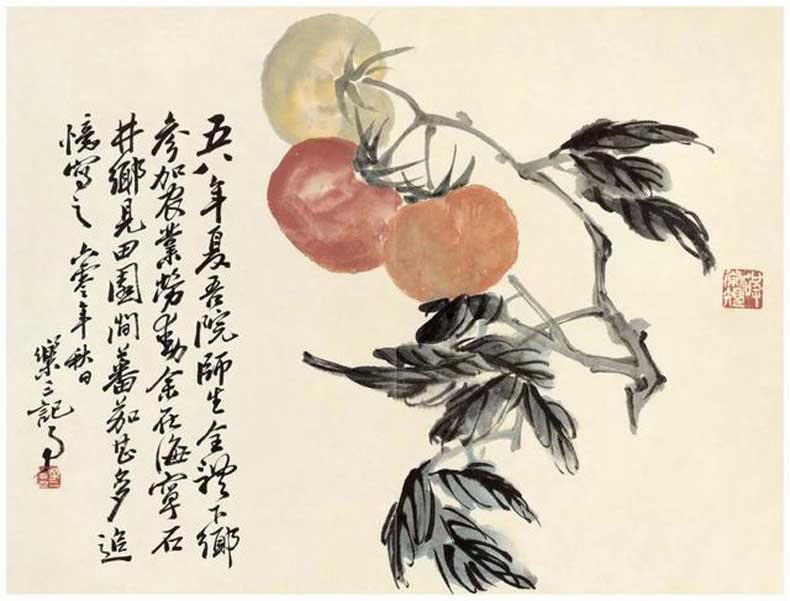 五八年夏吾院師生全體下鄉
參加农業勞動余在海寧石
井鄉見田園間蕃茄甚多追
憶寫之 六零年秋日
樂三記